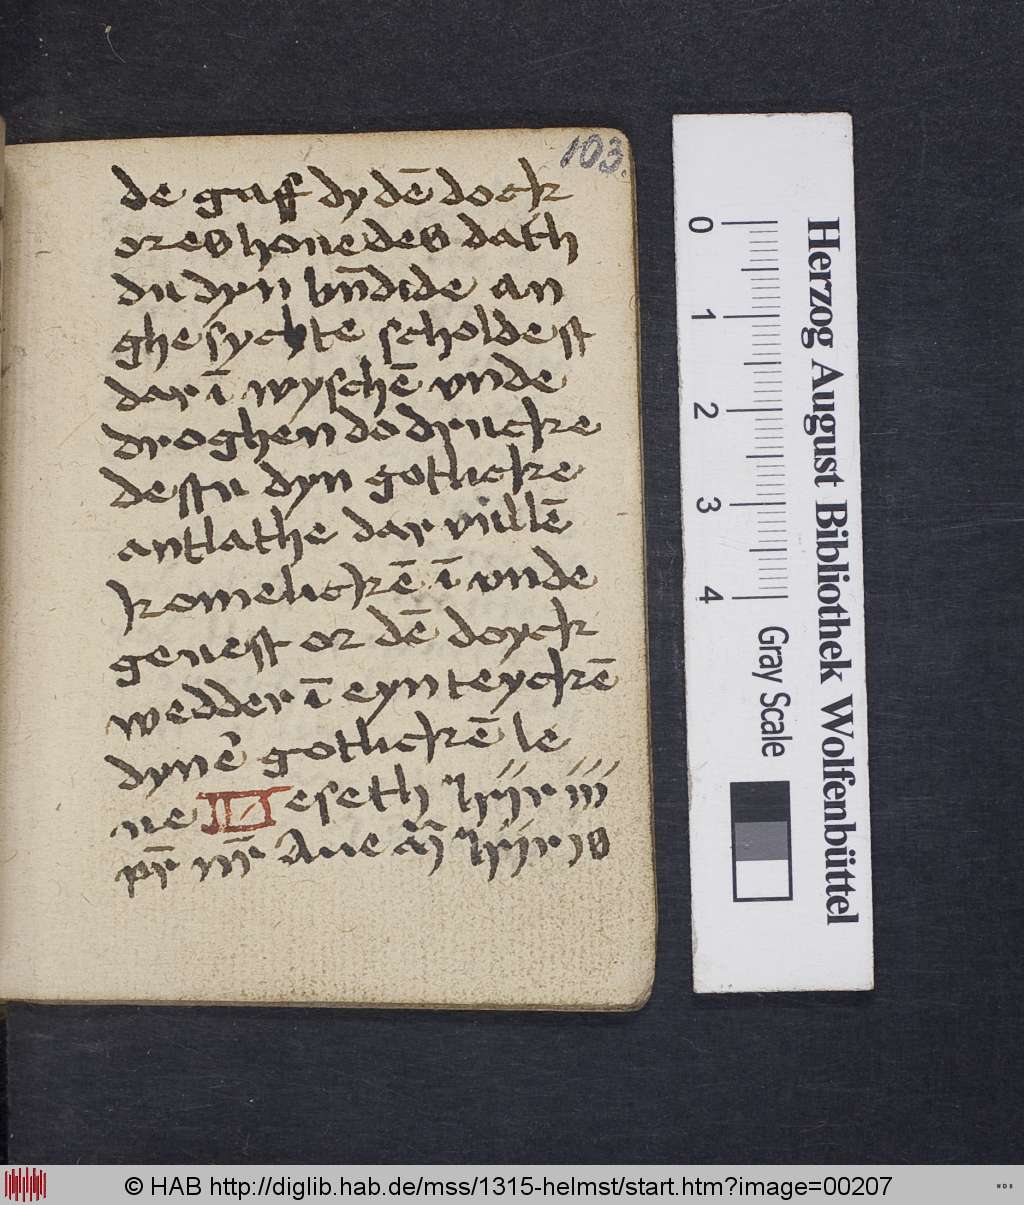 103.
de gaff dy dē dock
ores houedes dath
du dyn bn̄dide an
ghesychte scholdest
dar ī wyschē vnde
droghen do drucke
destu dyn gotlicke
antlathe dar vullē
komelickē ī vnde
geuest or dē doyck
wedder ī eyn teyckē
dyne gotlickē le
ue eseth
pr̄ nr̄ Aue
0
1
2
3
4
Gray Scale
Herzog August Bibliothek Wolfenbüttel
© HAB http://diglib.hab.de/mss/1315-helmst/start.htm?image=00207